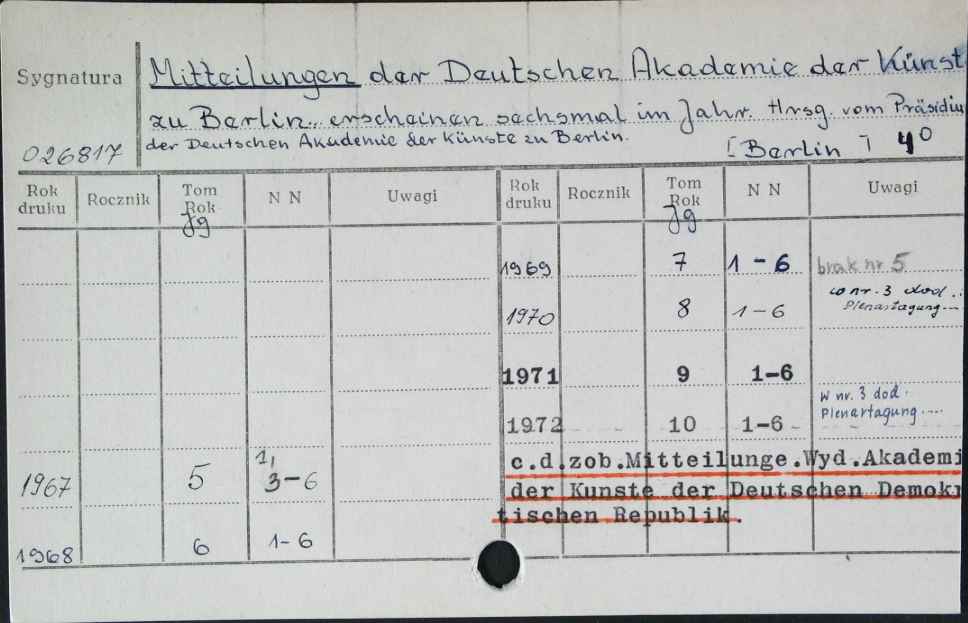 Sygnatura
Mitteilungen der Deutschen Akademie der Künst
zu Berlin. erscheinen sechsmal im Jahr. Hrsg. vom Präsidiu
der Deutschen Akademie der Künste zu Berlin.
026817
[Berlin] 4⁰
Rok druku Rocznik Tom Rok N N Uwagi Rok druku Rocznik Tom Rok N N Uwagi
Jg Jg
1969 7 1-6 brak nr 5
1970 8 1-6 w nr. 3 dod..
Plenartagung...
1971 9 1-6
1972 10 1-6 w nr. 3 dod.
Plenartagung....
1967 5 1, 3-6
c.d.zob.Mitteilunge.Wyd.Akademi
der Kunste der Deutschen Demokr
tischen Republik.
1968 6 1-6